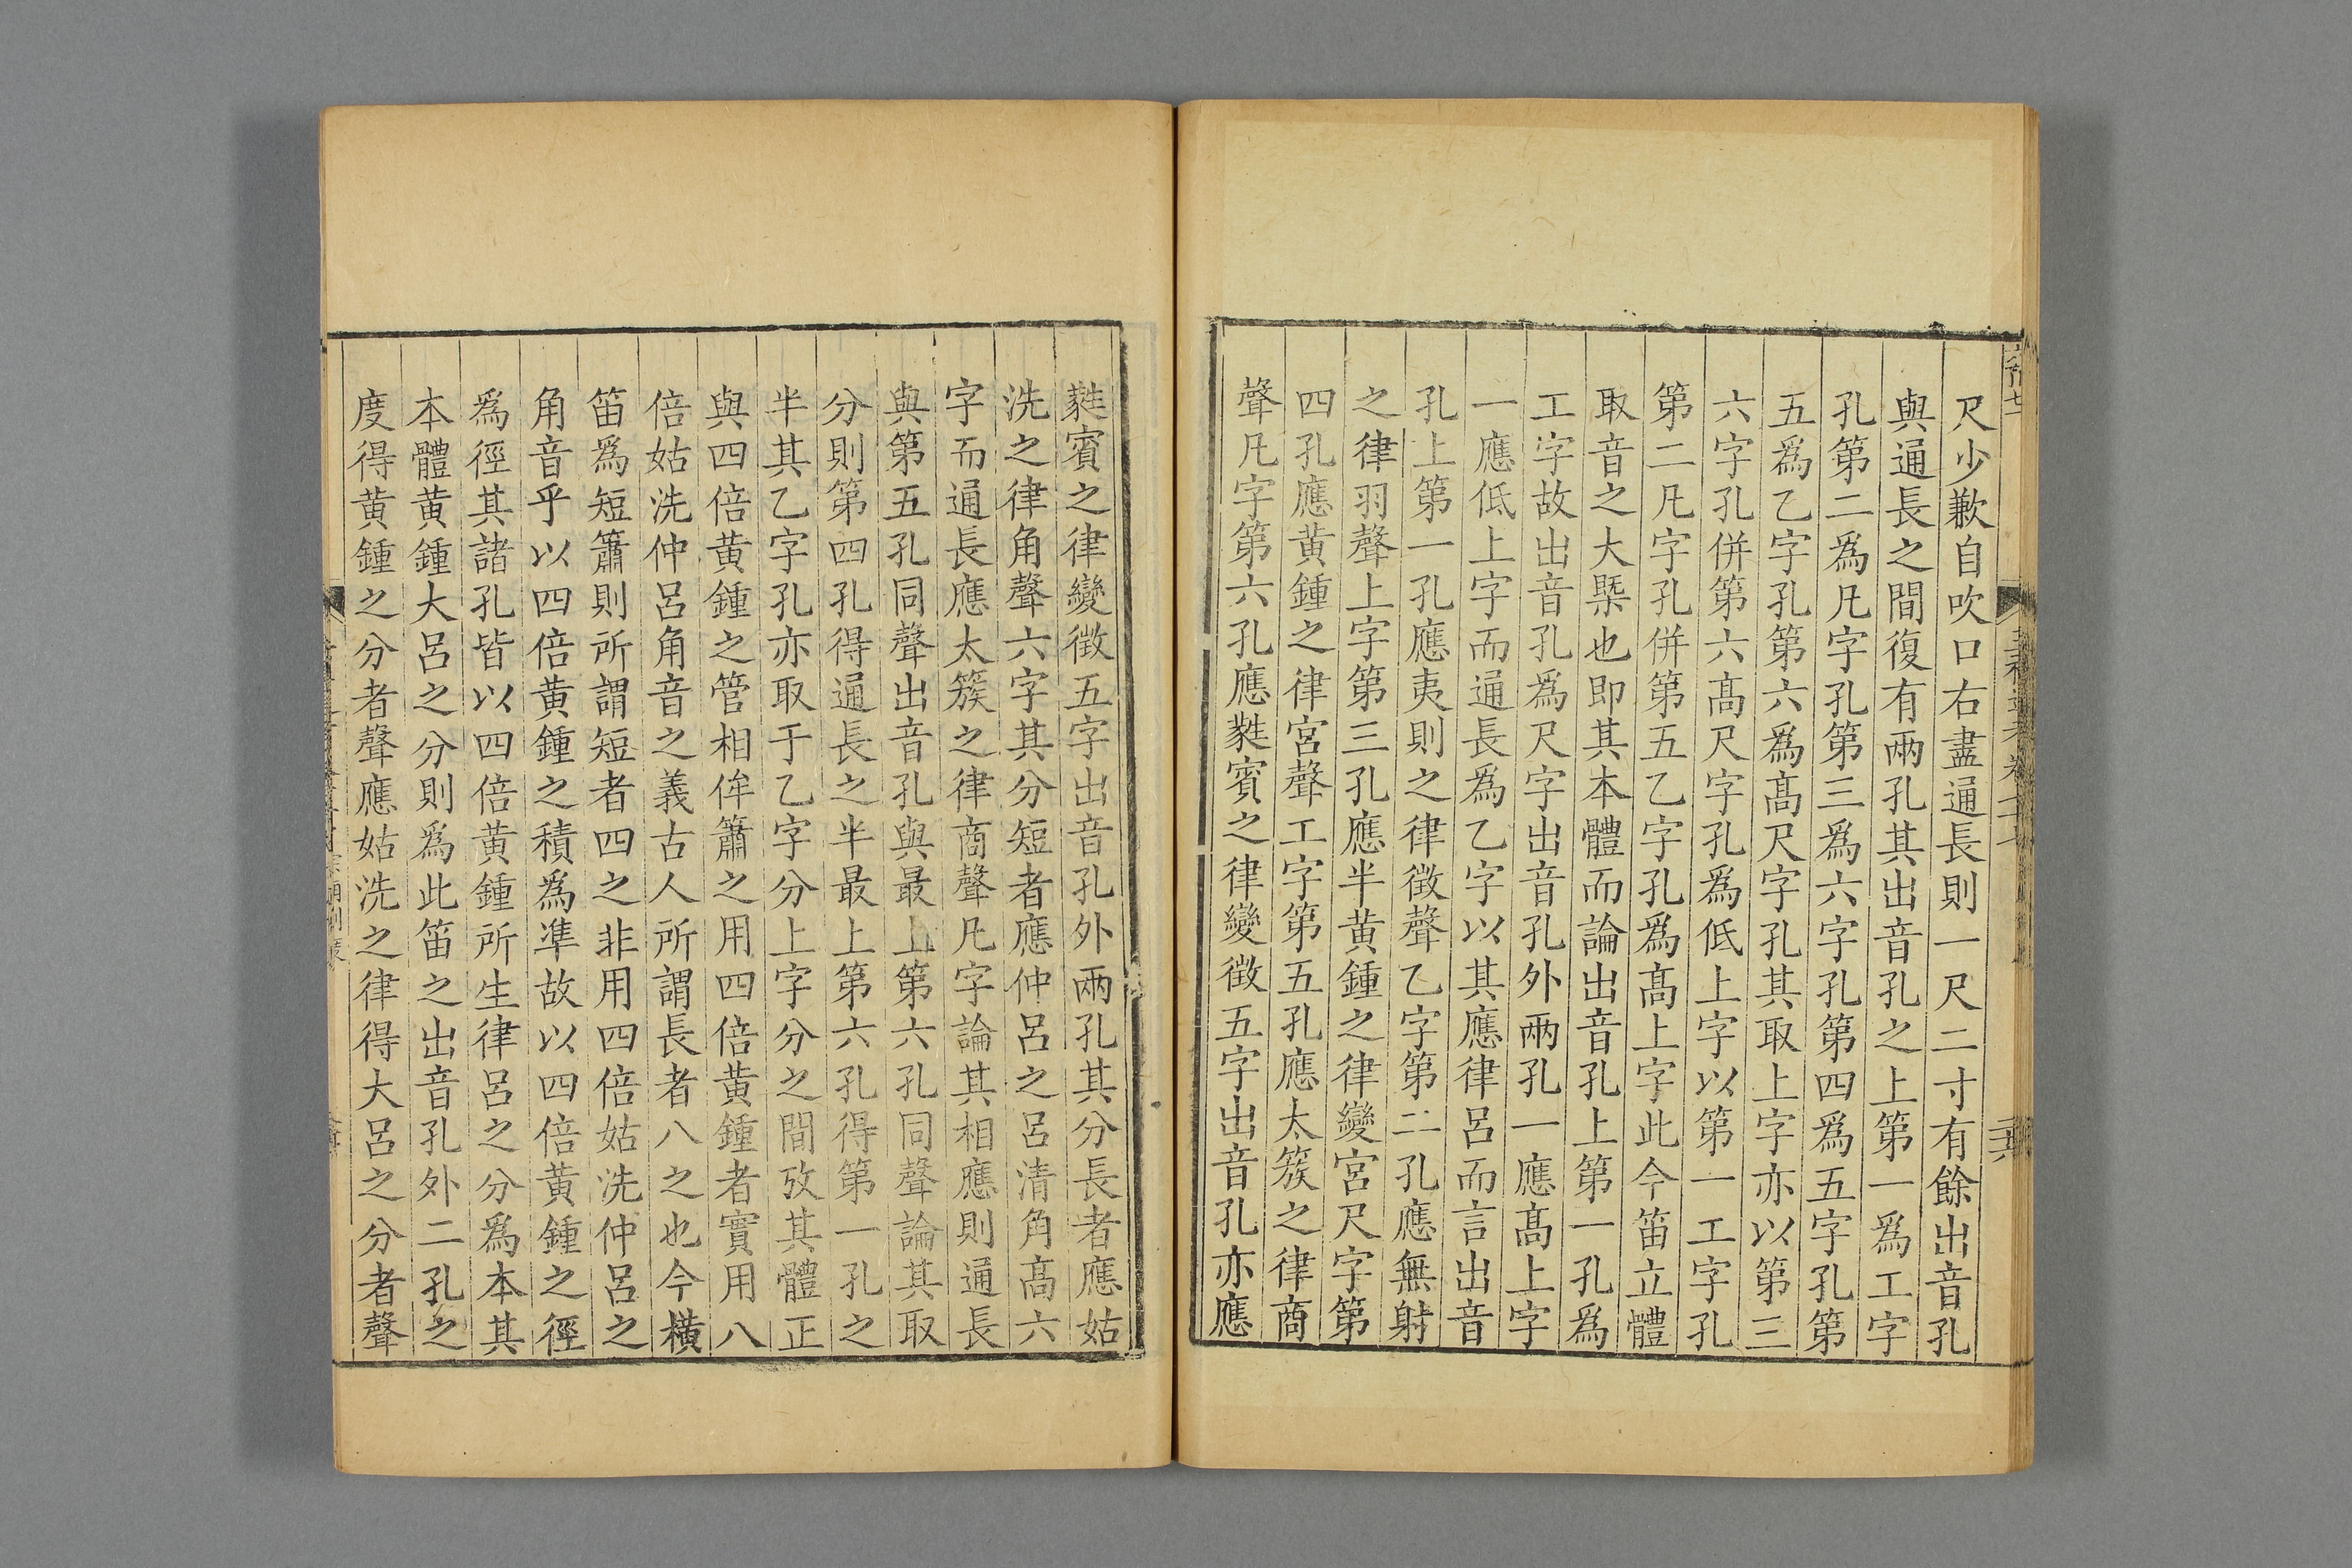 尺少歉自吹口右盡通長則一尺二寸有餘出音孔
與通長之間復有兩孔其出音孔之上第一爲工字
孔第二爲凡字孔第三爲六字孔第四爲五字孔第
五爲乙字孔第六爲髙尺字孔其取上字亦以第三
六字孔併第六髙尺字孔爲低上字以第一工字孔
第二凡字孔併第五乙字孔爲髙上字此今笛立體
取音之大槩也即其本體而論出音孔上第一孔爲
工字故出音孔爲尺字出音孔外兩孔一應髙上字
一應低上字而通長爲乙字以其應律呂而言出音
孔上第一孔應夷則之律徴聲乙字第二孔應無射
之律羽聲上字第三孔應半黄鍾之律變宮尺字第
四孔應黄鍾之律宮聲工字第五孔應太簇之律商
聲凡字第六孔應蕤賓之律變徴五字出音孔亦應
蕤賓之律變徴五字出音孔外兩孔其分長者應姑
洗之律角聲六字其分短者應仲呂之呂清角髙六
字而通長應太簇之律商聲凡字論其相應則通長
與第五孔同聲出音孔與最上第六孔同聲論其取
分則第四孔得通長之半最上第六孔得第一孔之
半其乙字孔亦取于乙字分上字分之間攷其體正
與四倍黄鍾之管相侔簫之用四倍黄鍾者實用八
倍姑洗仲呂角音之義古人所謂長者八之也今橫
笛爲短簫則所謂短者四之非用四倍姑洗仲呂之
角音乎以四倍黄鍾之積爲凖故以四倍黄鍾之徑
爲徑其諸孔皆以四倍黄鍾所生律呂之分爲本其
本體黄鍾大呂之分則爲此笛之出音孔外二孔之
度得黄鍾之分者聲應姑洗之律得大呂之分者聲